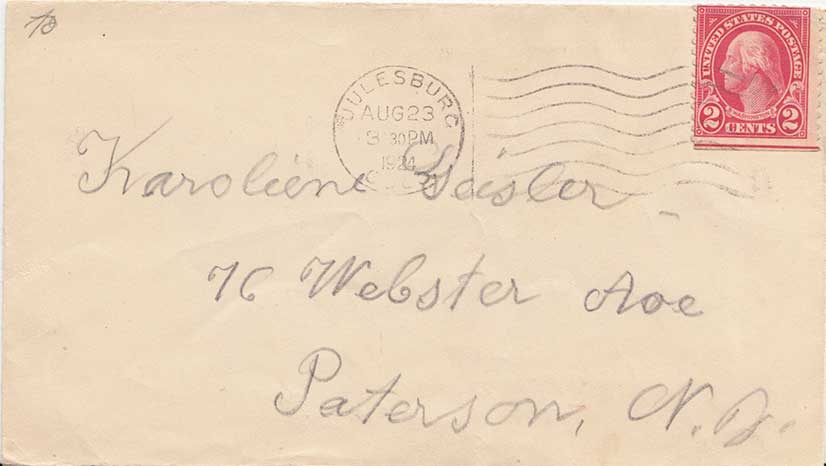 To
UNITED STATES POSTAGE
2 CENTS 2
JULESBURG
AUG 23
8 30 PM
1924
COLO.
Karoliene Geisler
76 Webster Ave
Paterson, N.J.